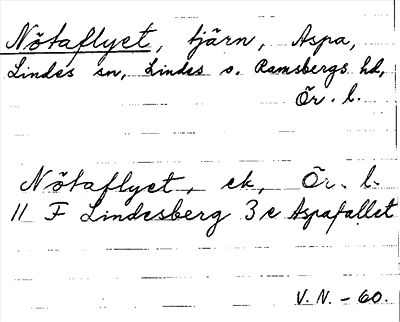 Nötaflyet, tjärn, Aspa,
Lindes sn, Lindes o. Ramsbergs hd,
Ör. l.
Nötaflyet, ek, Ör. l.
11 F Lindesberg 3 c Aspafallet
V. N. - 60.